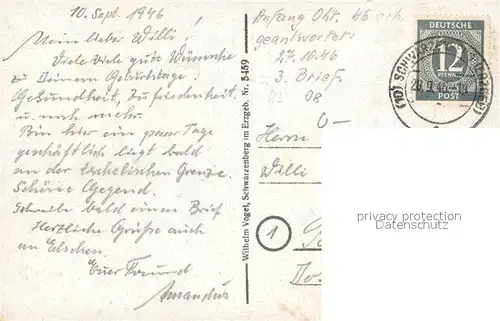 10. Sept. 1946
Mein lieber Willi!
Viele Viele gute Wünsche
zu Deinem Geburtstage!
Gesundheit, Zufriedenheit
u. noch mehr.
Bin hier ein paar Tage
geschäftlich liegt bald
an der tschechischen Grenze.
Schöne Gegend.
Schreibe bald einen Brief
Herzliche Grüsse auch
an Elschen.
Euer Freund
Amandus
Wilhelm Vogel, Schwarzenberg im Erzgeb. Nr. 5459
Anfang Okt. 46 erh.
geantwortet
27.10.46
3. Brief
08
Herrn
Willi
DEUTSCHE
12
PFENNIG
POST
(10) SCHWARZENBERG
privacy protection
Datenschutz